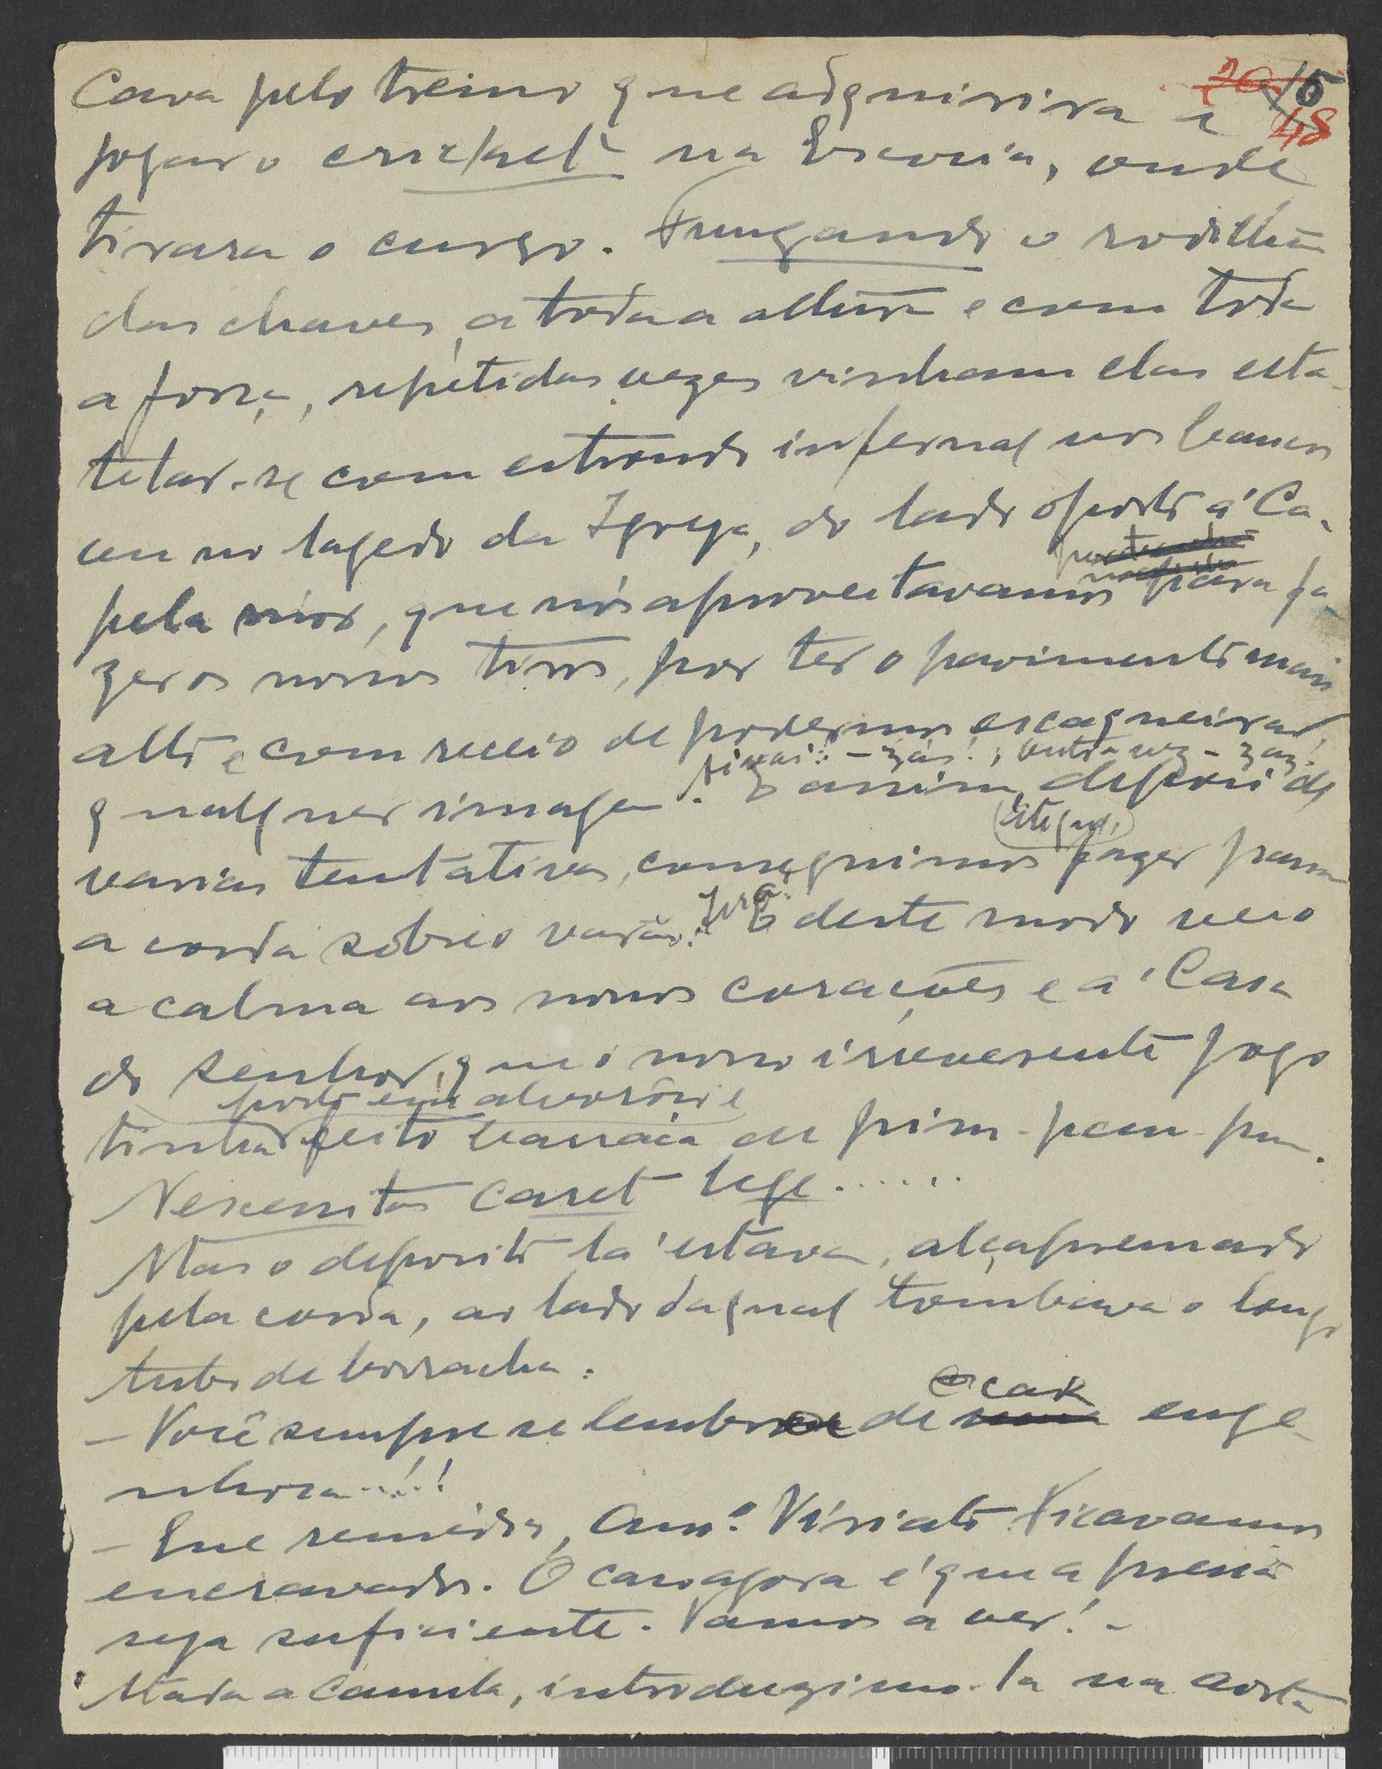 cava pelo treino que adquirira a 15
48
jogar o cricket na Escocia, onde
tirara o curso. Fungando o rodilhão
das chaves, a toda a altura e com toda
a força, repetidas vezes vinham elas esta-
telar-se com estrondo infernal nos bancos
ou no lagedo da Igreja, do lado oposto á Ca-
pela mór, que nós aproveitavamos para fa-
zer os nossos tiros, por ter o pavimento mais
alto e com receio de podermos escaqueirar
qualquer imagem. E assim, depois de
Lá vai: - zás!; outra vez - zaz!
varias tentativas, conseguimos fazer passar
a corda sobre o varão. E deste modo veio
a calma aos nossos corações e á Casa
do Senhor, que o nosso irreverente jogo
posto em alvorôço e
tinha feito barraca de pim-pam-pum.
Necessitas caret lege......
Mas o deposito lá estava, alçapremado
pela corda, ao lado da qual tombava o longo
tubo de borracha.
- Você sempre se lembra de cada enge-
nhoca...!!
- Que remedio, Amo. Viriato. Ficavamos
encravados. O caso agora é que a pressão
seja suficiente. Vamos a ver! -
Atada a canula, introduzimo-la na aorta